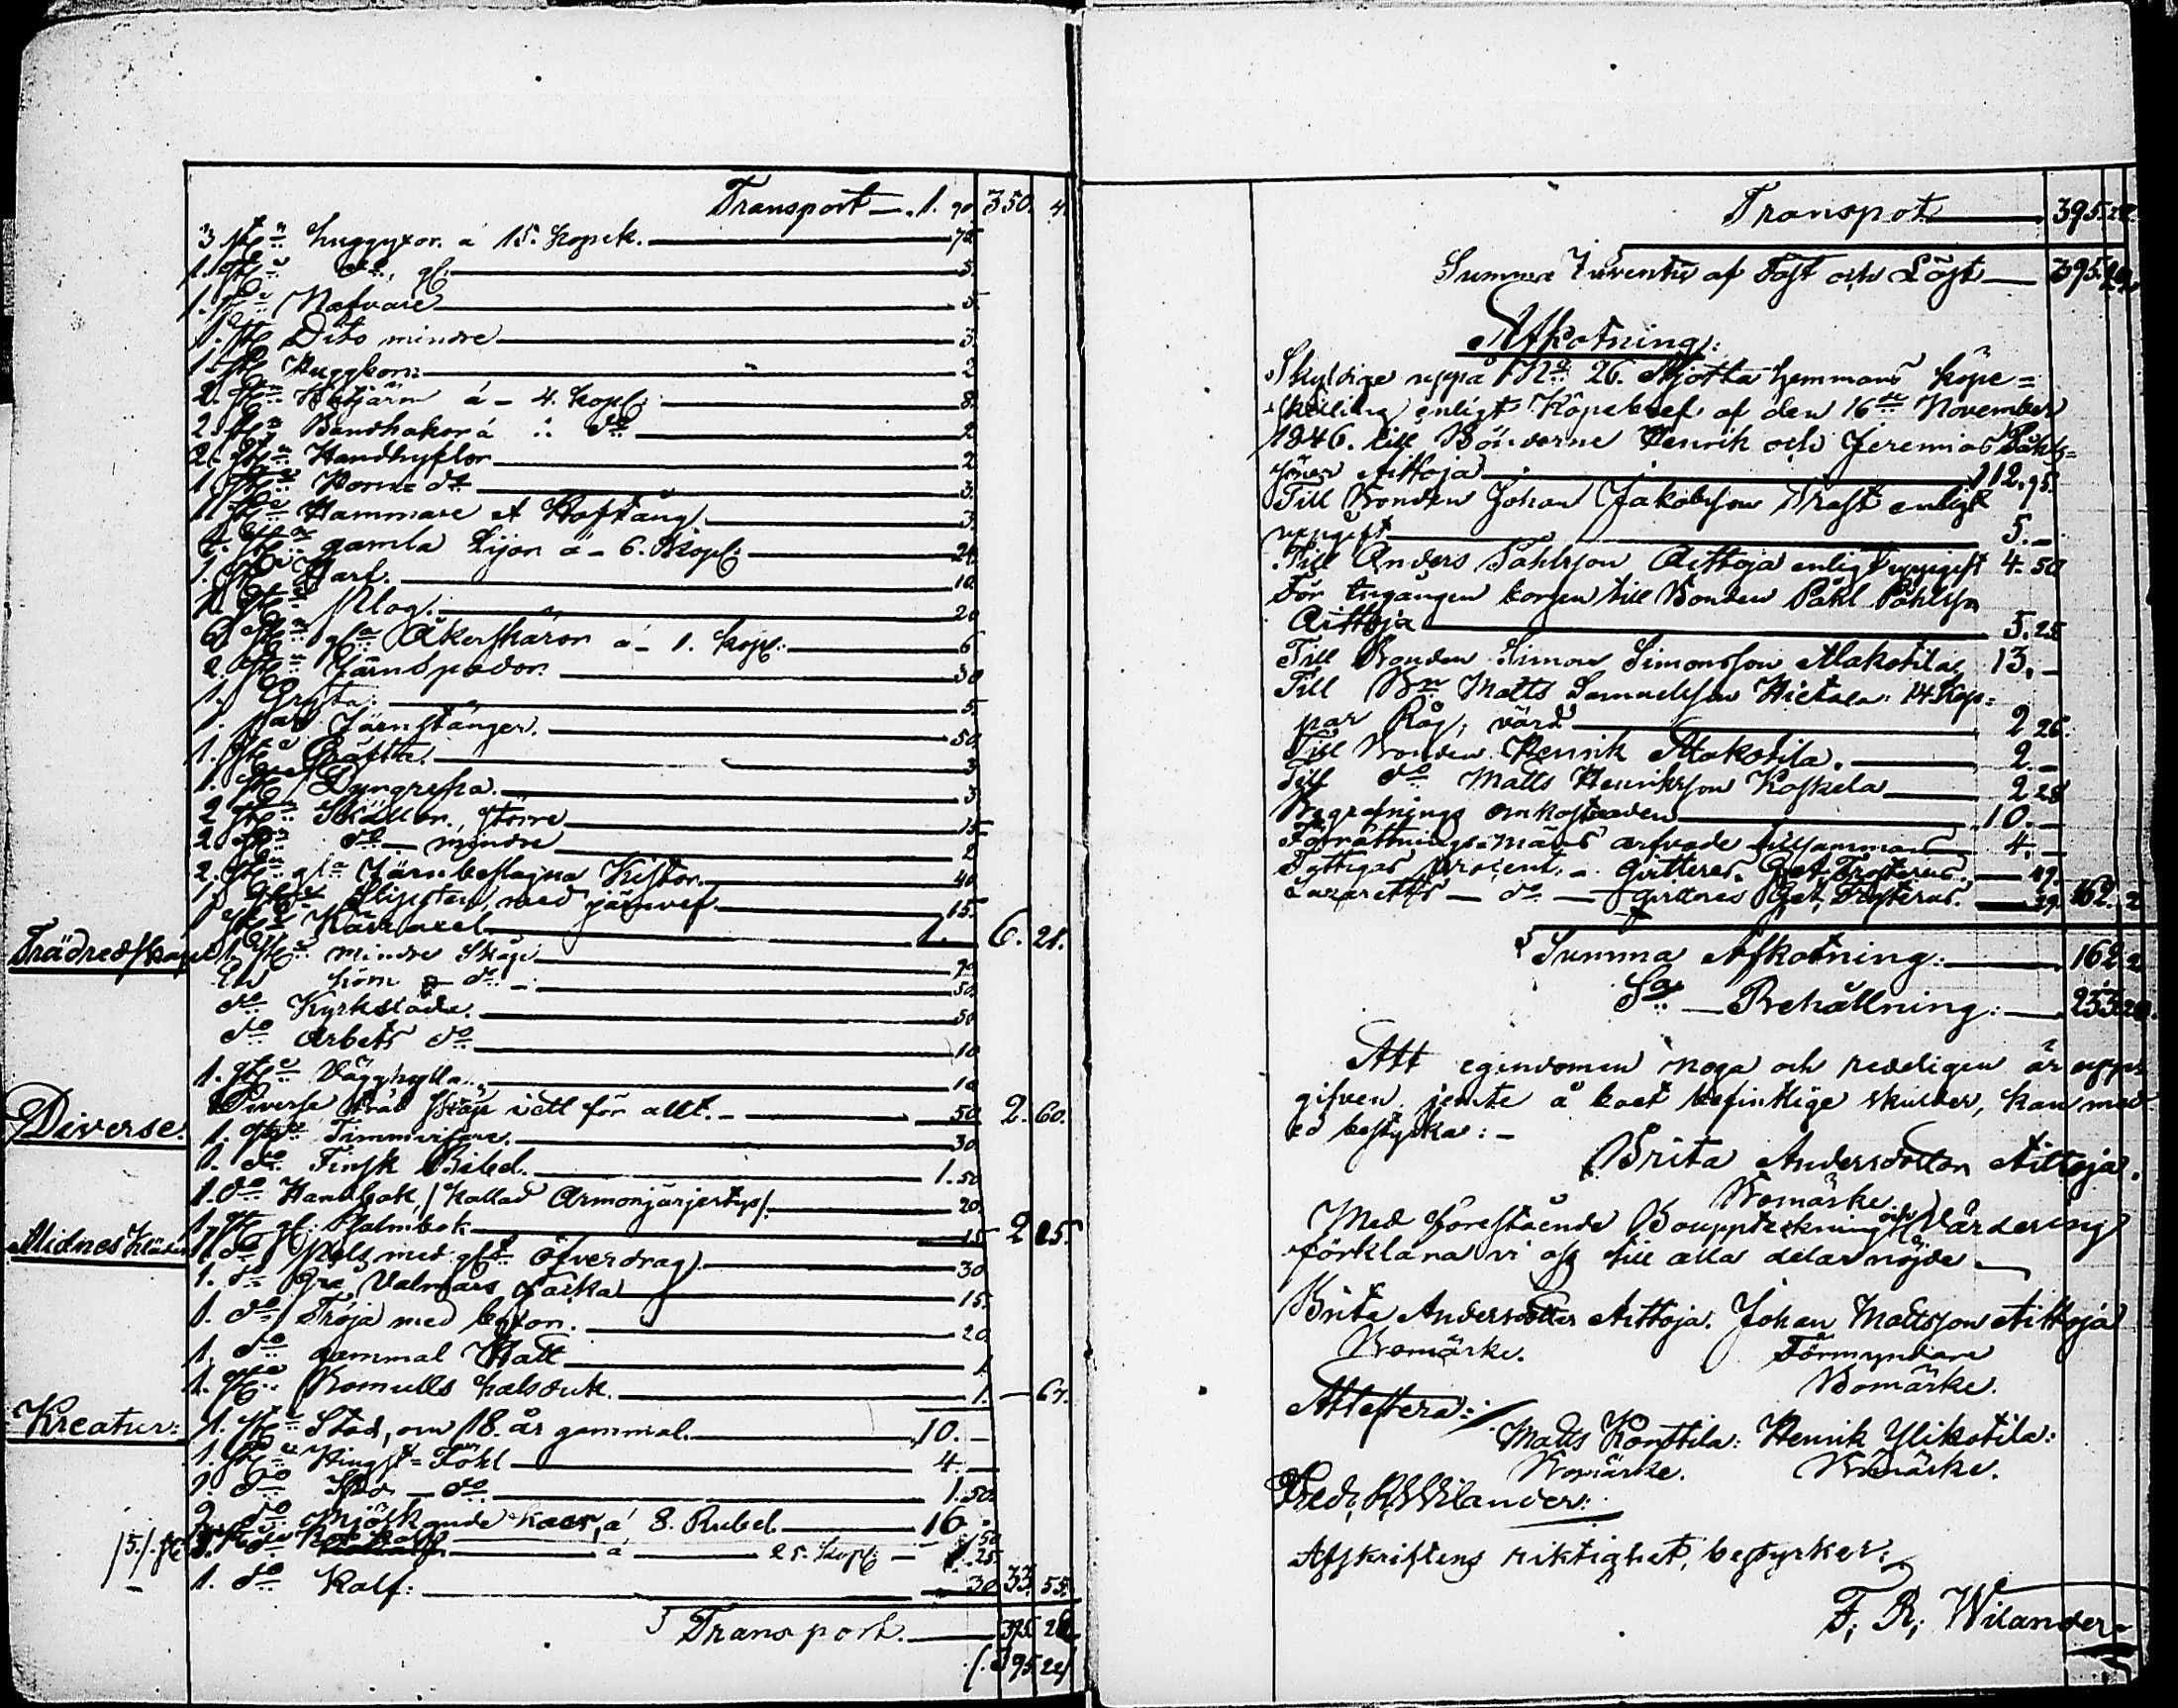 Transport 1. 70 350. 4.
3 st: huggyxor á 15. kopek. 75.
1. st: do, gl: 5.
1. st Nafvare 5.
1. st Dito mindre 3.
1. st Huggborr 2
2. st á 4. kop: 8.
2. st Bandhakar á do 2
2. st Handhyflor 2
1. st 3.
1. st Hammare et Hoftång 3.
4. st gamla Lijor á 6. kop: 24.
1. st Harf. 10.
1. st Plog. 20
6 st gla Åkerskäror á 1. kop: 6
2. st Järnspador. 30
1. Gryta: 5.
1. par Järnstänger. 50.
1. st Gräfta 3
1. st Dyngrefva. 3
2 st större 15
2 st do mindre 2
2. st gla Järnbeslagna Kistor. 40
1 st Slipsten, med järnvef. 15.
1 st Kärraxel 1. 6. 21.
Trädredskap 1. st mindre 70
En do 50
do Kyrkslade. 50
do Arbets do 10
1. st Vägghylla. 10
Diverse träd iett för allt. 50 2. 60.
Diverse. 1. st Timmvisare. 30
1. do Finsk Bibel. 1.50
1. do Handbok, /kallad Armonjärjestys/. 20.
1 st gl: Psalmbok 15 2 15.
Klädes 1. do Pels med glt öfverdrag. 30
1. do Grå Valmars Jacka 15.
1. do Tröja med byxor. 20
1. do gammal Hatt 1.
1. st Bomulls halsduk. 1. — 67.
Kreatur: 1. st Stod, om 18. år gammal. 10. —
1. st Hingst-Fohl 4. —
1 do Sto do 1.50.
2 do Mjölkande koor, á 8. Rubel. 16.
/5./ st á 25. kop: 1. 25.
1. do Kalf: 30 33. 55.
Transport. 395. 22
/. 395. 22/
Transpot 395. 22.
Summa Inventie af Fast och Löst 395. 22.
Afkotning:
Skyldige uppå No 26. Ajotta hemmans köpe=
skilling enligt Köpebref af den 16de November
1846. till Bönderne Henrik och Jeremias Påhls=
söner Aittoja 112. 95.
Till Bonden Johan Jakobsson Prast enligt
uppgift 5. —
Till Anders Påhlsson Aittoja enligt uppgift 4. 50
För till Bonden Påhl Påhlson
Aittoja 5. 25
Till Bonden Simon Simonsson Alakotila 13. —
Till Bn Matts Samuelsson Hietala: 14 Kap=
par Råg, värd 2 26.
Till Bonden Henrik Alakotila. 2. —
Till do Matts Henriksson Koskela 2 28
Begrafnings omkostnaden 10. —
Förrättnings-mäns arfvode tillsammans 4. —
Fattigas procent. qvitteras. Get, Frosterus. 49.
Lazaretts do qvitteras Get, Frosterus. 39. 162. 2
Summa Afkotning: 162. 2
Sa Behållning: 233. 20.
Att egendomen noga och redeligen är upp=
gifven, jemte å boet befintlige skulder, kan med
ed bestyrka: —
Brita Andersdotter Aittoja.
Bomärke.
Med förestående Bouppteckning och Värdering
förklara vi oss till alla delar nöjde.
Brita Andersdotter Aittoja. Johan Mattsson Aittoja
Bomärke. Förmyndare
Bomärke.
Attestera:
Matts Konttila: Henrik Ylikotila:
Bomärke. Bomärke.
Fred, R, Wilander:
Afskriftens riktighet, bestyrker:
F, R, Wilander